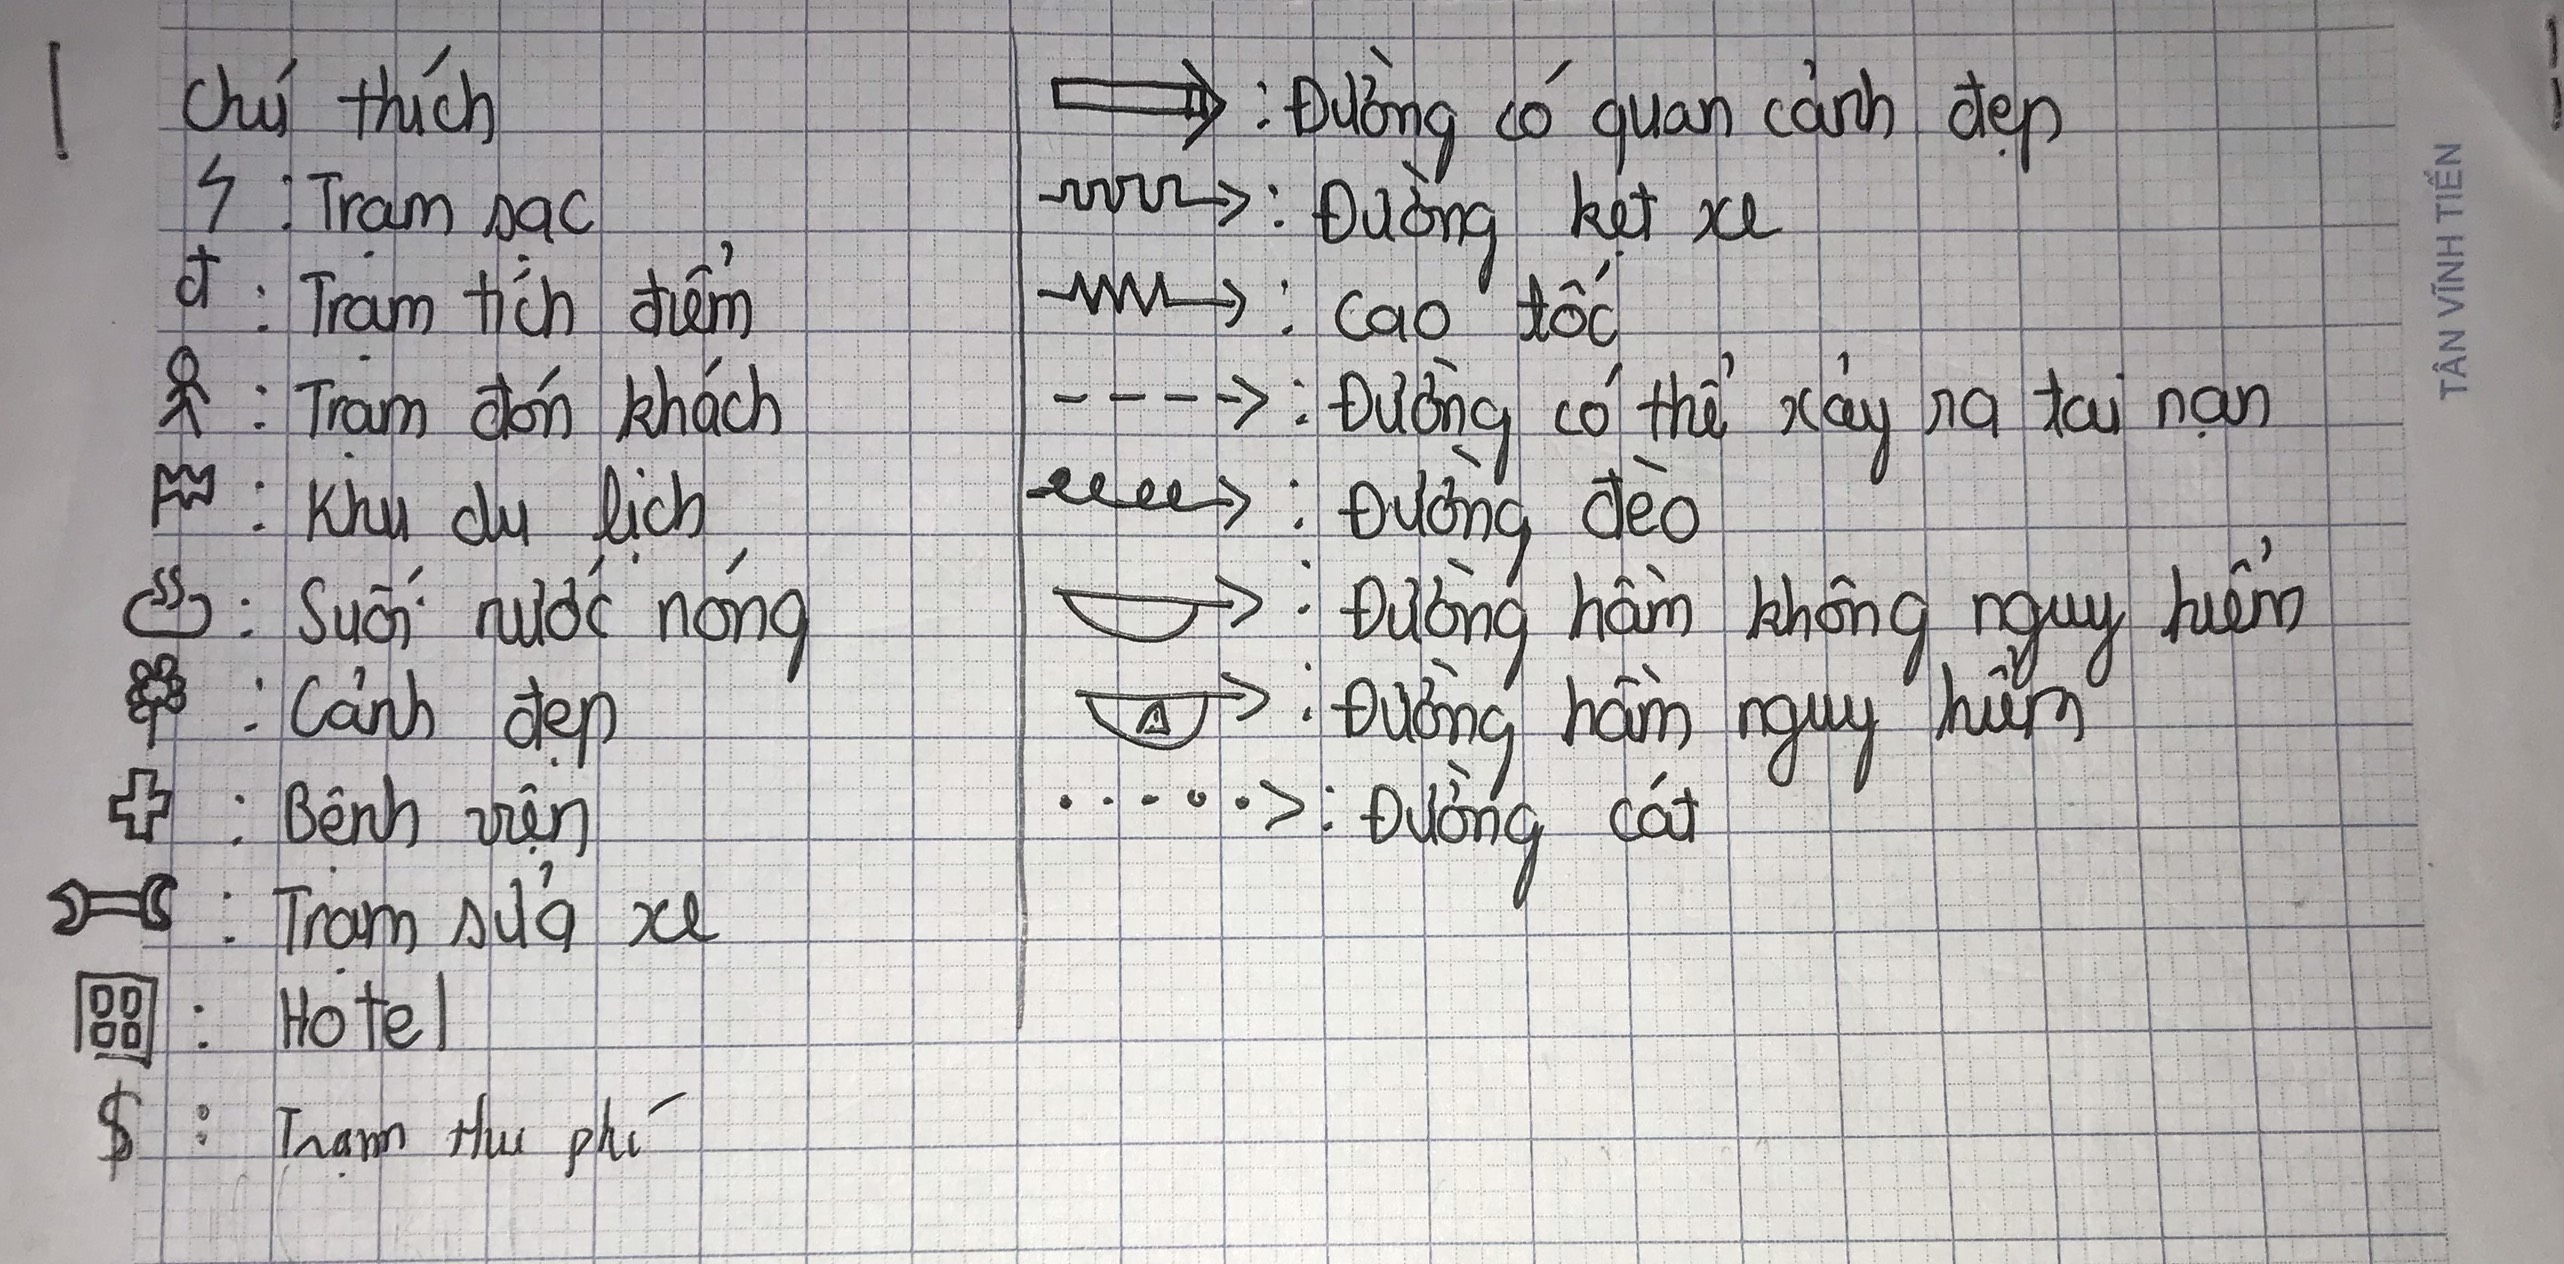 Chú thích
: Trạm sạc
đ : Trạm tích điểm
: Trạm đón khách
: Khu du lịch
: Suối nước nóng
: Cảnh đẹp
: Bệnh viện
: Trạm sửa xe
: Hotel
$ : Trạm thu phí
: Đường có quan cảnh đẹp
: Đường kẹt xe
: Cao tốc
: Đường có thể xảy ra tai nạn
: Đường đèo
: Đường hầm không nguy hiểm
: Đường hầm nguy hiểm
: Đường cát
TÂN VĨNH TIẾN